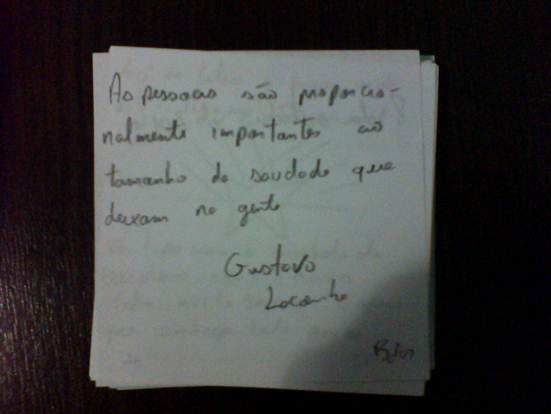 As pessoas são proporcio-
nalmente importantes ao
tamanho da saudade que
deixam na gente
Gustavo
Lacombe